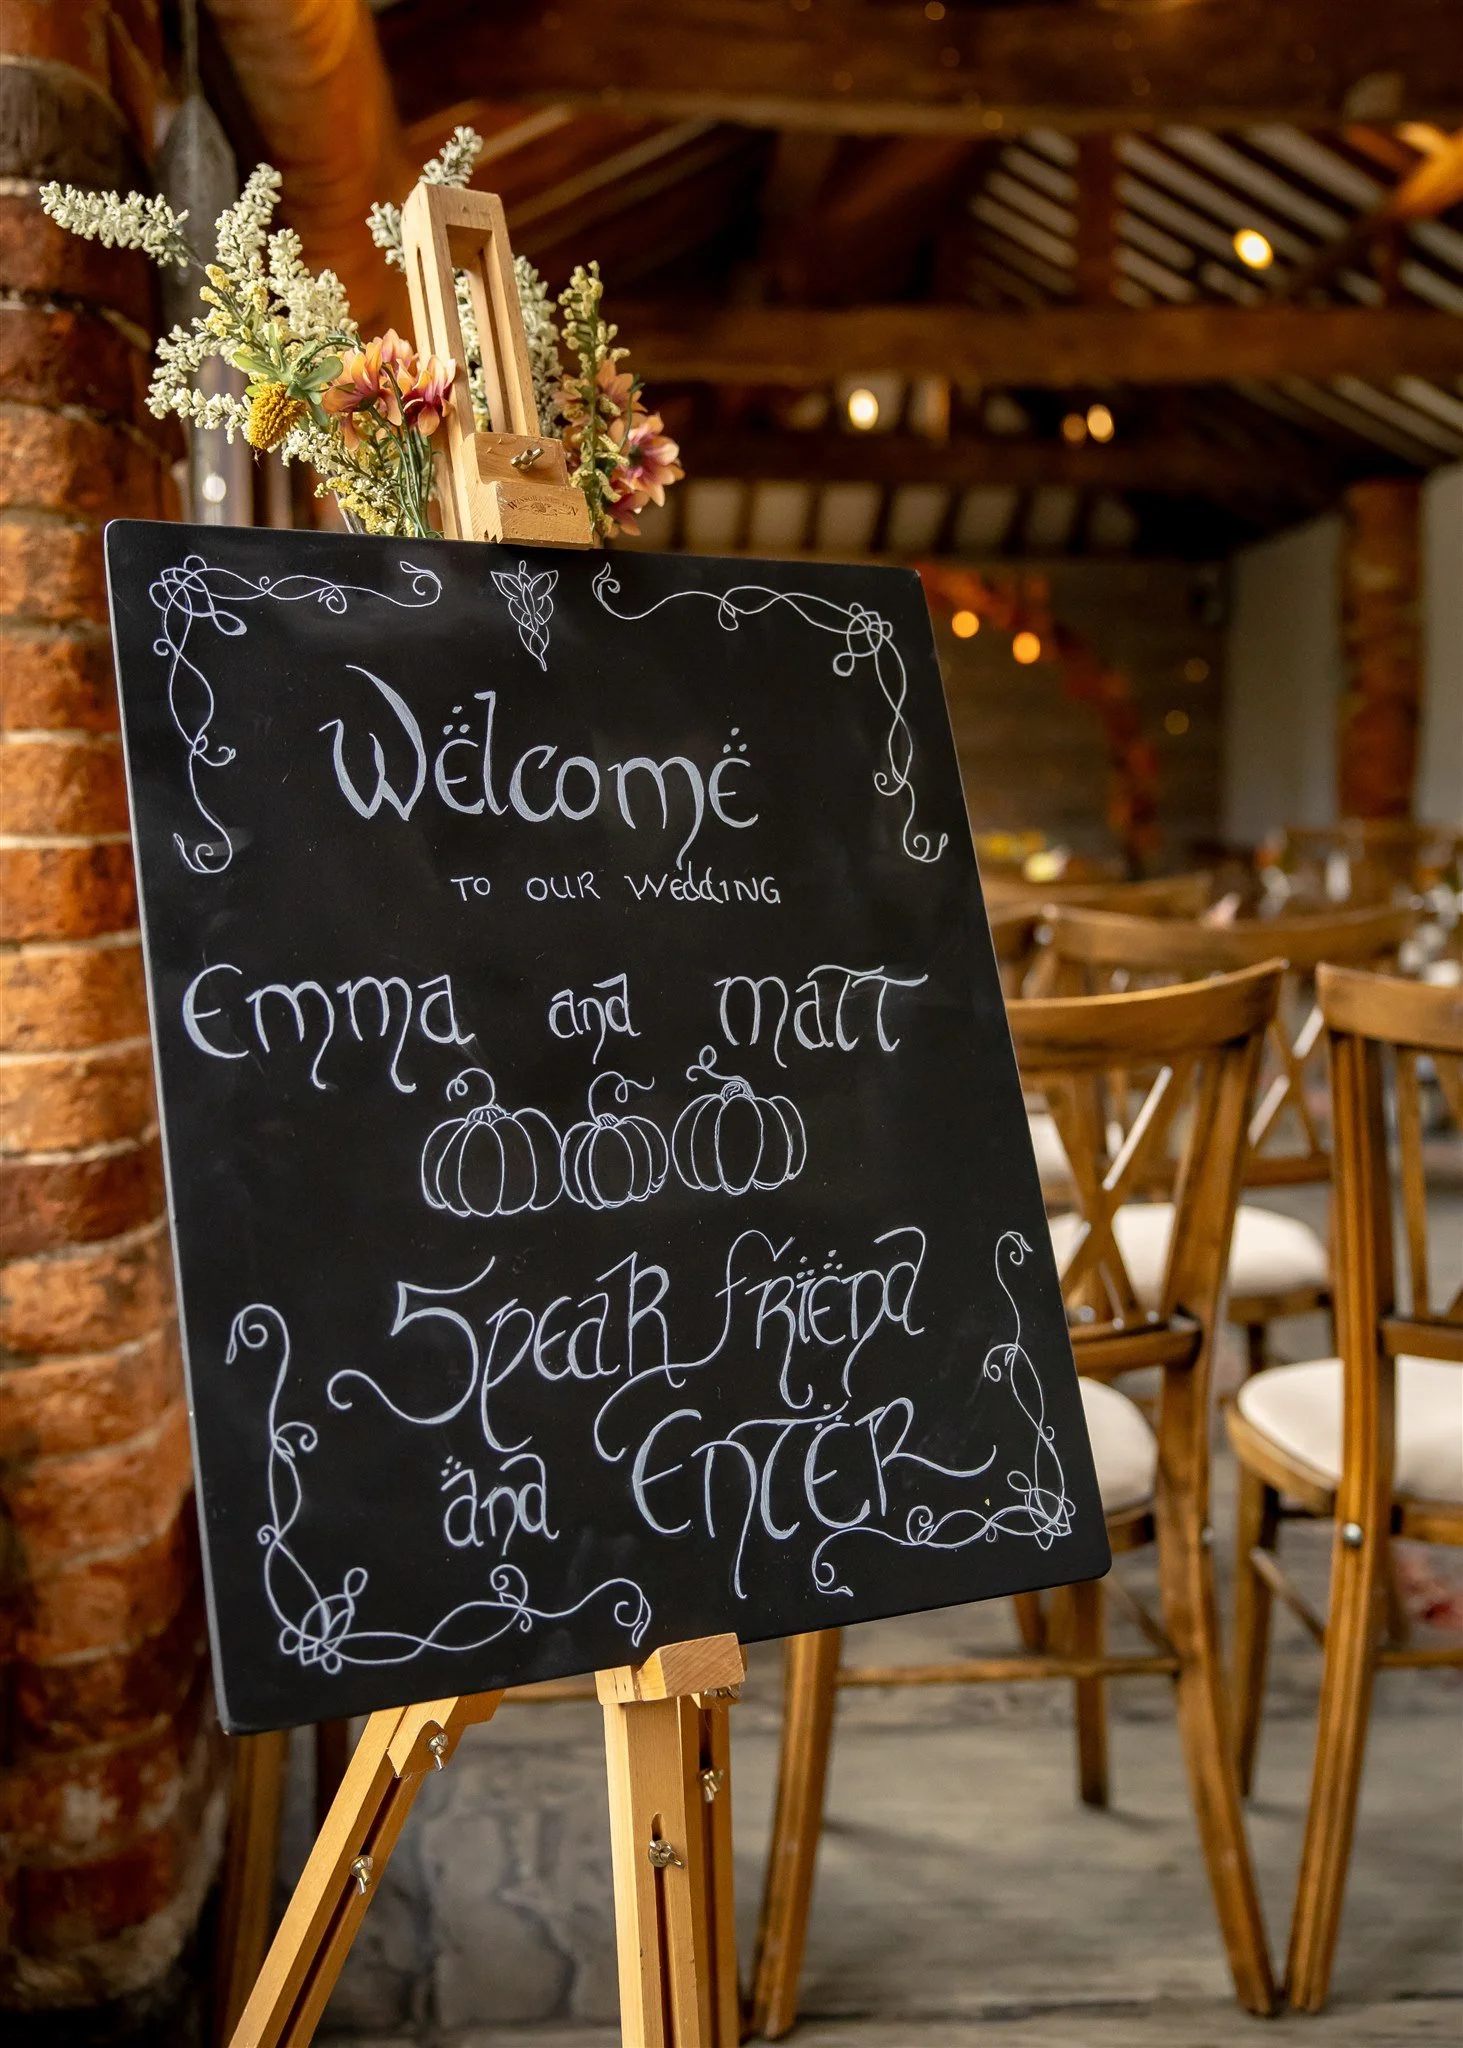 Welcome
TO OUR WEDDING
Emma and Matt
Speak friend
and Enter